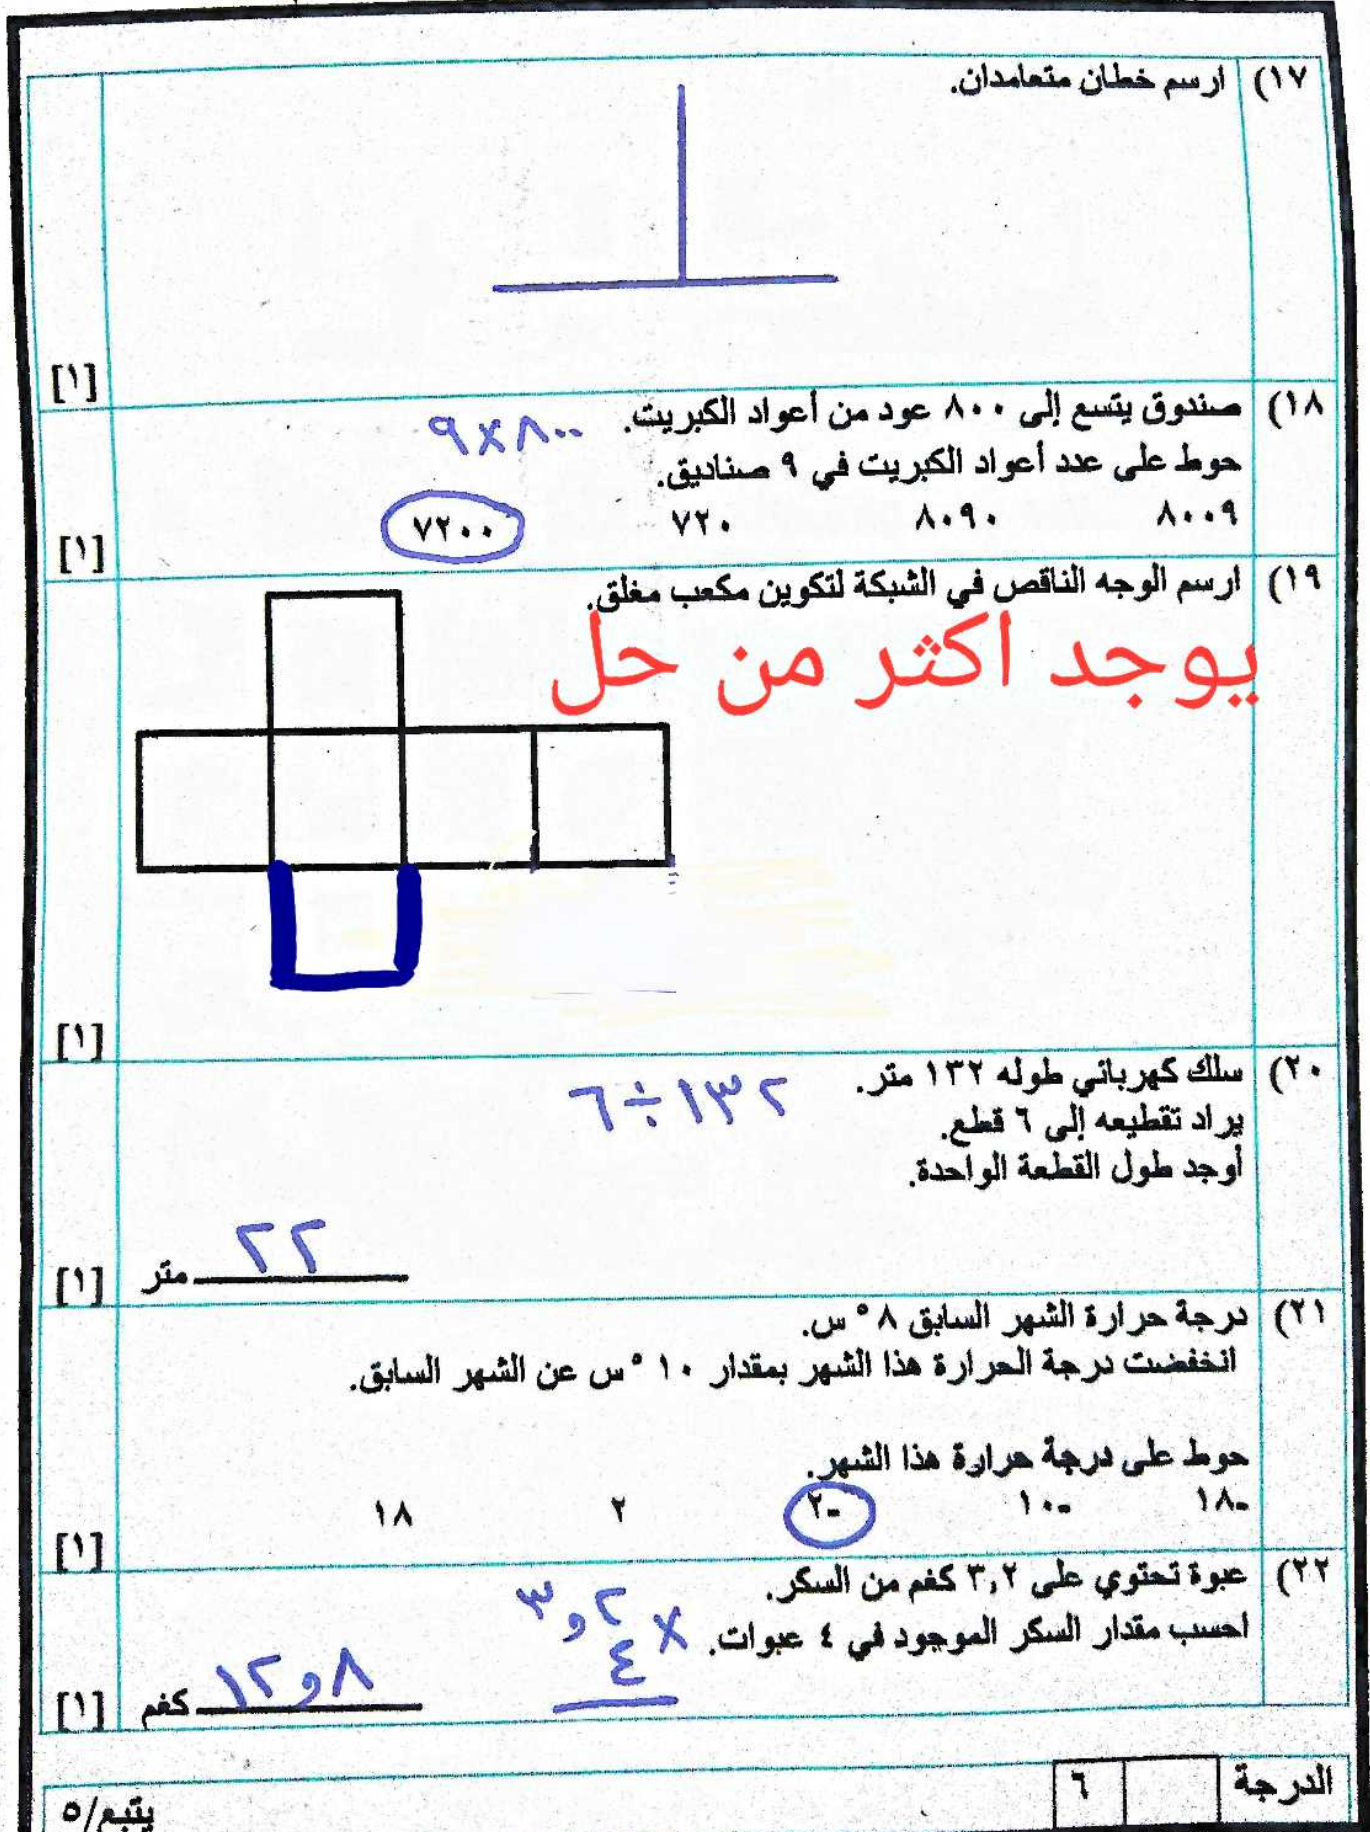 ١٧) ارسم خطان متعامدان.
[١]
١٨) صندوق يتسع إلى ٨٠٠ عود من أعواد الكبريت.
٩×٨٠٠
حوط على عدد أعواد الكبريت في ٩ صناديق.
٨٠٠٩ ٨٠٩٠ ٧٢٠ ٧٢٠٠
[١]
١٩) ارسم الوجه الناقص في الشبكة لتكوين مكعب مغلق.
يوجد اكثر من حل
[١]
٢٠) سلك كهربائي طوله ١٣٢ متر.
٦÷١٣٢
يراد تقطيعه إلى ٦ قطع.
أوجد طول القطعة الواحدة.
٢٢ متر
[١]
٢١) درجة حرارة الشهر السابق ٨ °س.
انخفضت درجة الحرارة هذا الشهر بمقدار ١٠ °س عن الشهر السابق.
حوط على درجة حرارة هذا الشهر.
-١٨ -١٠ -٢ ٢ ١٨
[١]
٢٢) عبوة تحتوي على ٣,٢ كغم من السكر.
٣و٢
احسب مقدار السكر الموجود في ٤ عبوات.
×
٤
١٢و٨ كغم
[١]
الدرجة ٦
يتبع/٥